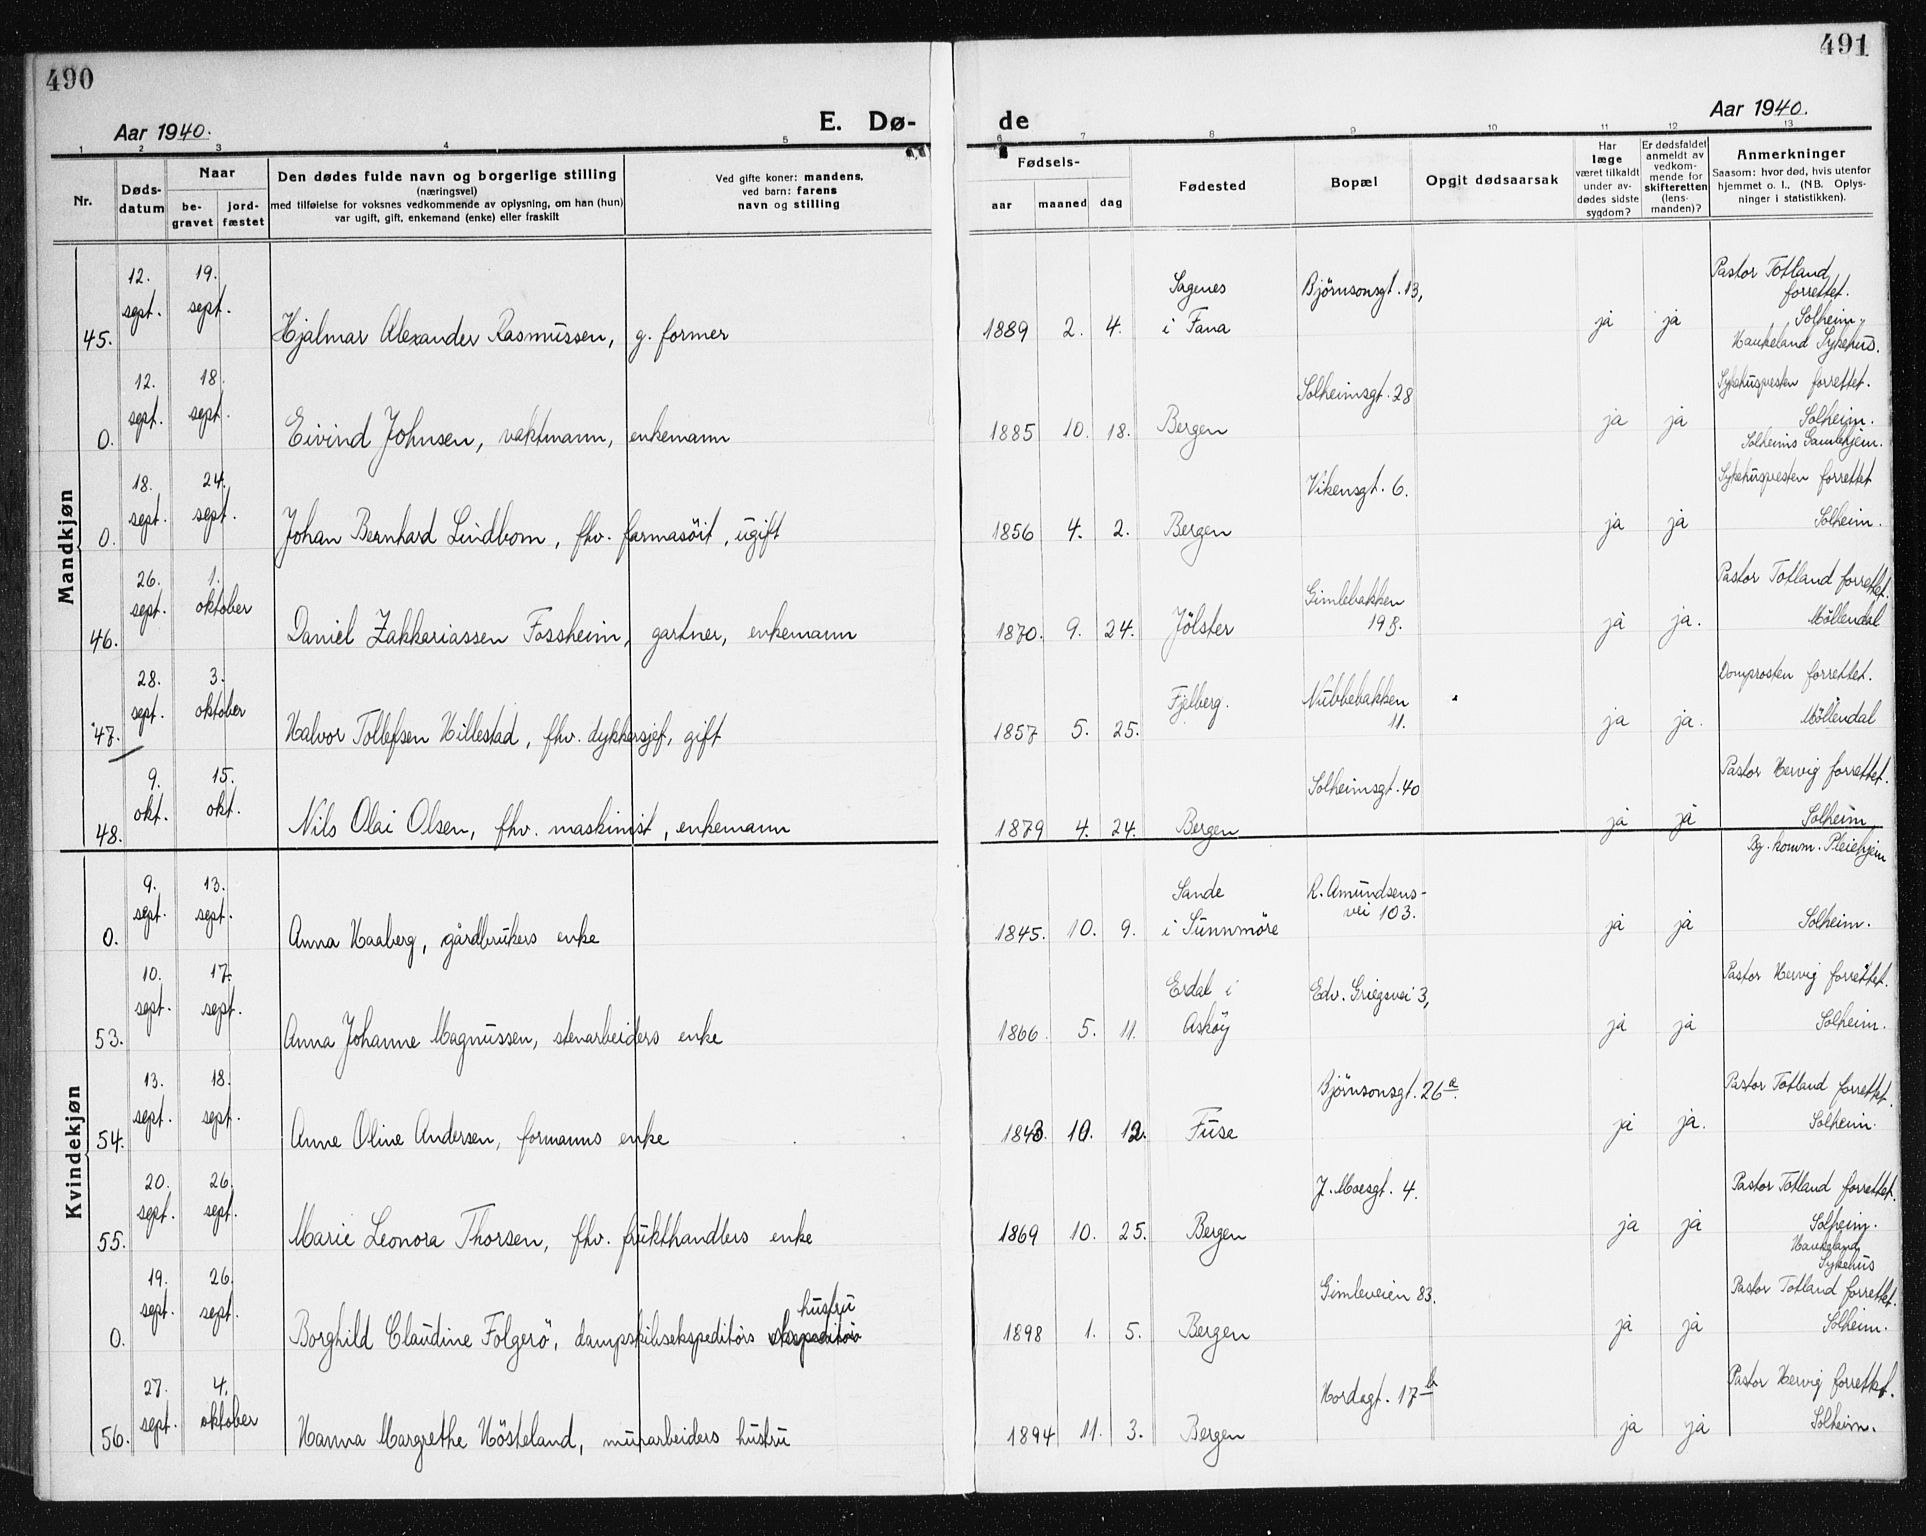 490
Aar 1940.
E. Dø-
1 2 3 4 5
Nr.
Døds-
datum
Naar
be-
gravet
jord-
fæstet
Den dødes fulde navn og borgerlige stilling
(næringsvei)
med tilføielse for voksnes vedkommende av oplysning, om han (hun)
var ugift, gift, enkemand (enke) eller fraskilt
Ved gifte koner: mandens,
ved barn: farens
navn og stilling
Mandkjøn
45. 12. sept. 19. sept. Hjalmar Alexander Rasmussen, g. former
0. 12. sept. 18. sept. Eivind Johnsen, vaktmann, enkemann
0. 18. sept. 24. sept. Johan Bernhard Lindbom, fhv. farmasöit, ugift
46. 26. sept. 1. oktober Daniel Zakkariassen Fossheim, gartner, enkemann
47. 28. sept. 3. oktober Halvor Tollefsen Hillestad, fhv. dykkersjef, gift
48. 9. okt. 15. okt. Nils Olai Olsen, fhv. maskinist, enkemann
Kvindekjøn
0. 9. sept. 13. sept. Anna Haaberg, gårdbrukers enke
53. 10. sept. 17. sept. Anna Johanne Magnussen, stenarbeiders enke
54. 13. sept. 18. sept. Anne Oline Andersen, formanns enke
55. 20. sept. 26. sept. Marie Leonora Thorsen, fhv. frukthandlers enke
0. 19. sept. 26. sept. Borghild Claudine Folgerö, dampskibsekspeditörs hustru
56. 27. sept. 4. oktober Hanna Margrethe Hösteland, murarbeiders hustru
491
de
Aar 1940.
6 7 8 9 10 11 12 13
Fødsels-
aar maaned dag
Fødested
Bopæl
Opgit dødsaarsak
Har
læge
været tilkaldt
under av-
dødes sidste
sygdom?
Er dødsfaldet
anmeldt av
vedkom-
mende for
skifteretten
(lens-
manden)?
Anmerkninger
Saasom: hvor død, hvis utenfor
hjemmet o. l., (NB. Oplys-
ninger i statistikken).
1889 2. 4. Sagenes i Fana Björnsonsgt. 13, ja ja Pastor Totland forrettet. Solheim. Haukeland Sykehus.
1885 10. 18. Bergen Solheimsgt. 28 ja ja Sykehuspresten forrettet. Solheim. Solheims Gamlehjem.
1856 4. 2. Bergen Vikensgt. 6. ja ja Sykehuspresten forrettet Solheim.
1870. 9. 24. Jölster Gimlebakken 19 B. ja ja. Pastor Totland forrettet. Möllendal
1857 5. 25. Fjelberg. Nubbebakken 11. ja ja. Domprosten forrettet. Möllendal
1879 4. 24. Bergen Solheimsgt. 40 ja ja Pastor Hervig forrettet. Solheim
Bg. komm. Pleiehjem
1845. 10. 9. Sande i Sunnmöre R. Amundsens-vei 103. ja ja Solheim.
1866. 5. 11. Erdal i Asköy Edv. Griegsvei 3, ja ja Pastor Hervig forrettet. Solheim.
1843. 10. 12. Fuse Björnsonsgt. 26 a. ja ja. Pastor Totland forrettet. Solheim.
1869 10. 25. Bergen J. Moesgt. 4. ja ja Pastor Totland forrettet. Solheim. Haukeland Sykehus
1898 1. 5. Bergen Gimleveien 83. ja ja Pastor Totland forrettet. Solheim.
1894 11. 3. Bergen Hordagt. 17 b ja ja Pastor Hervig forrettet. Solheim.